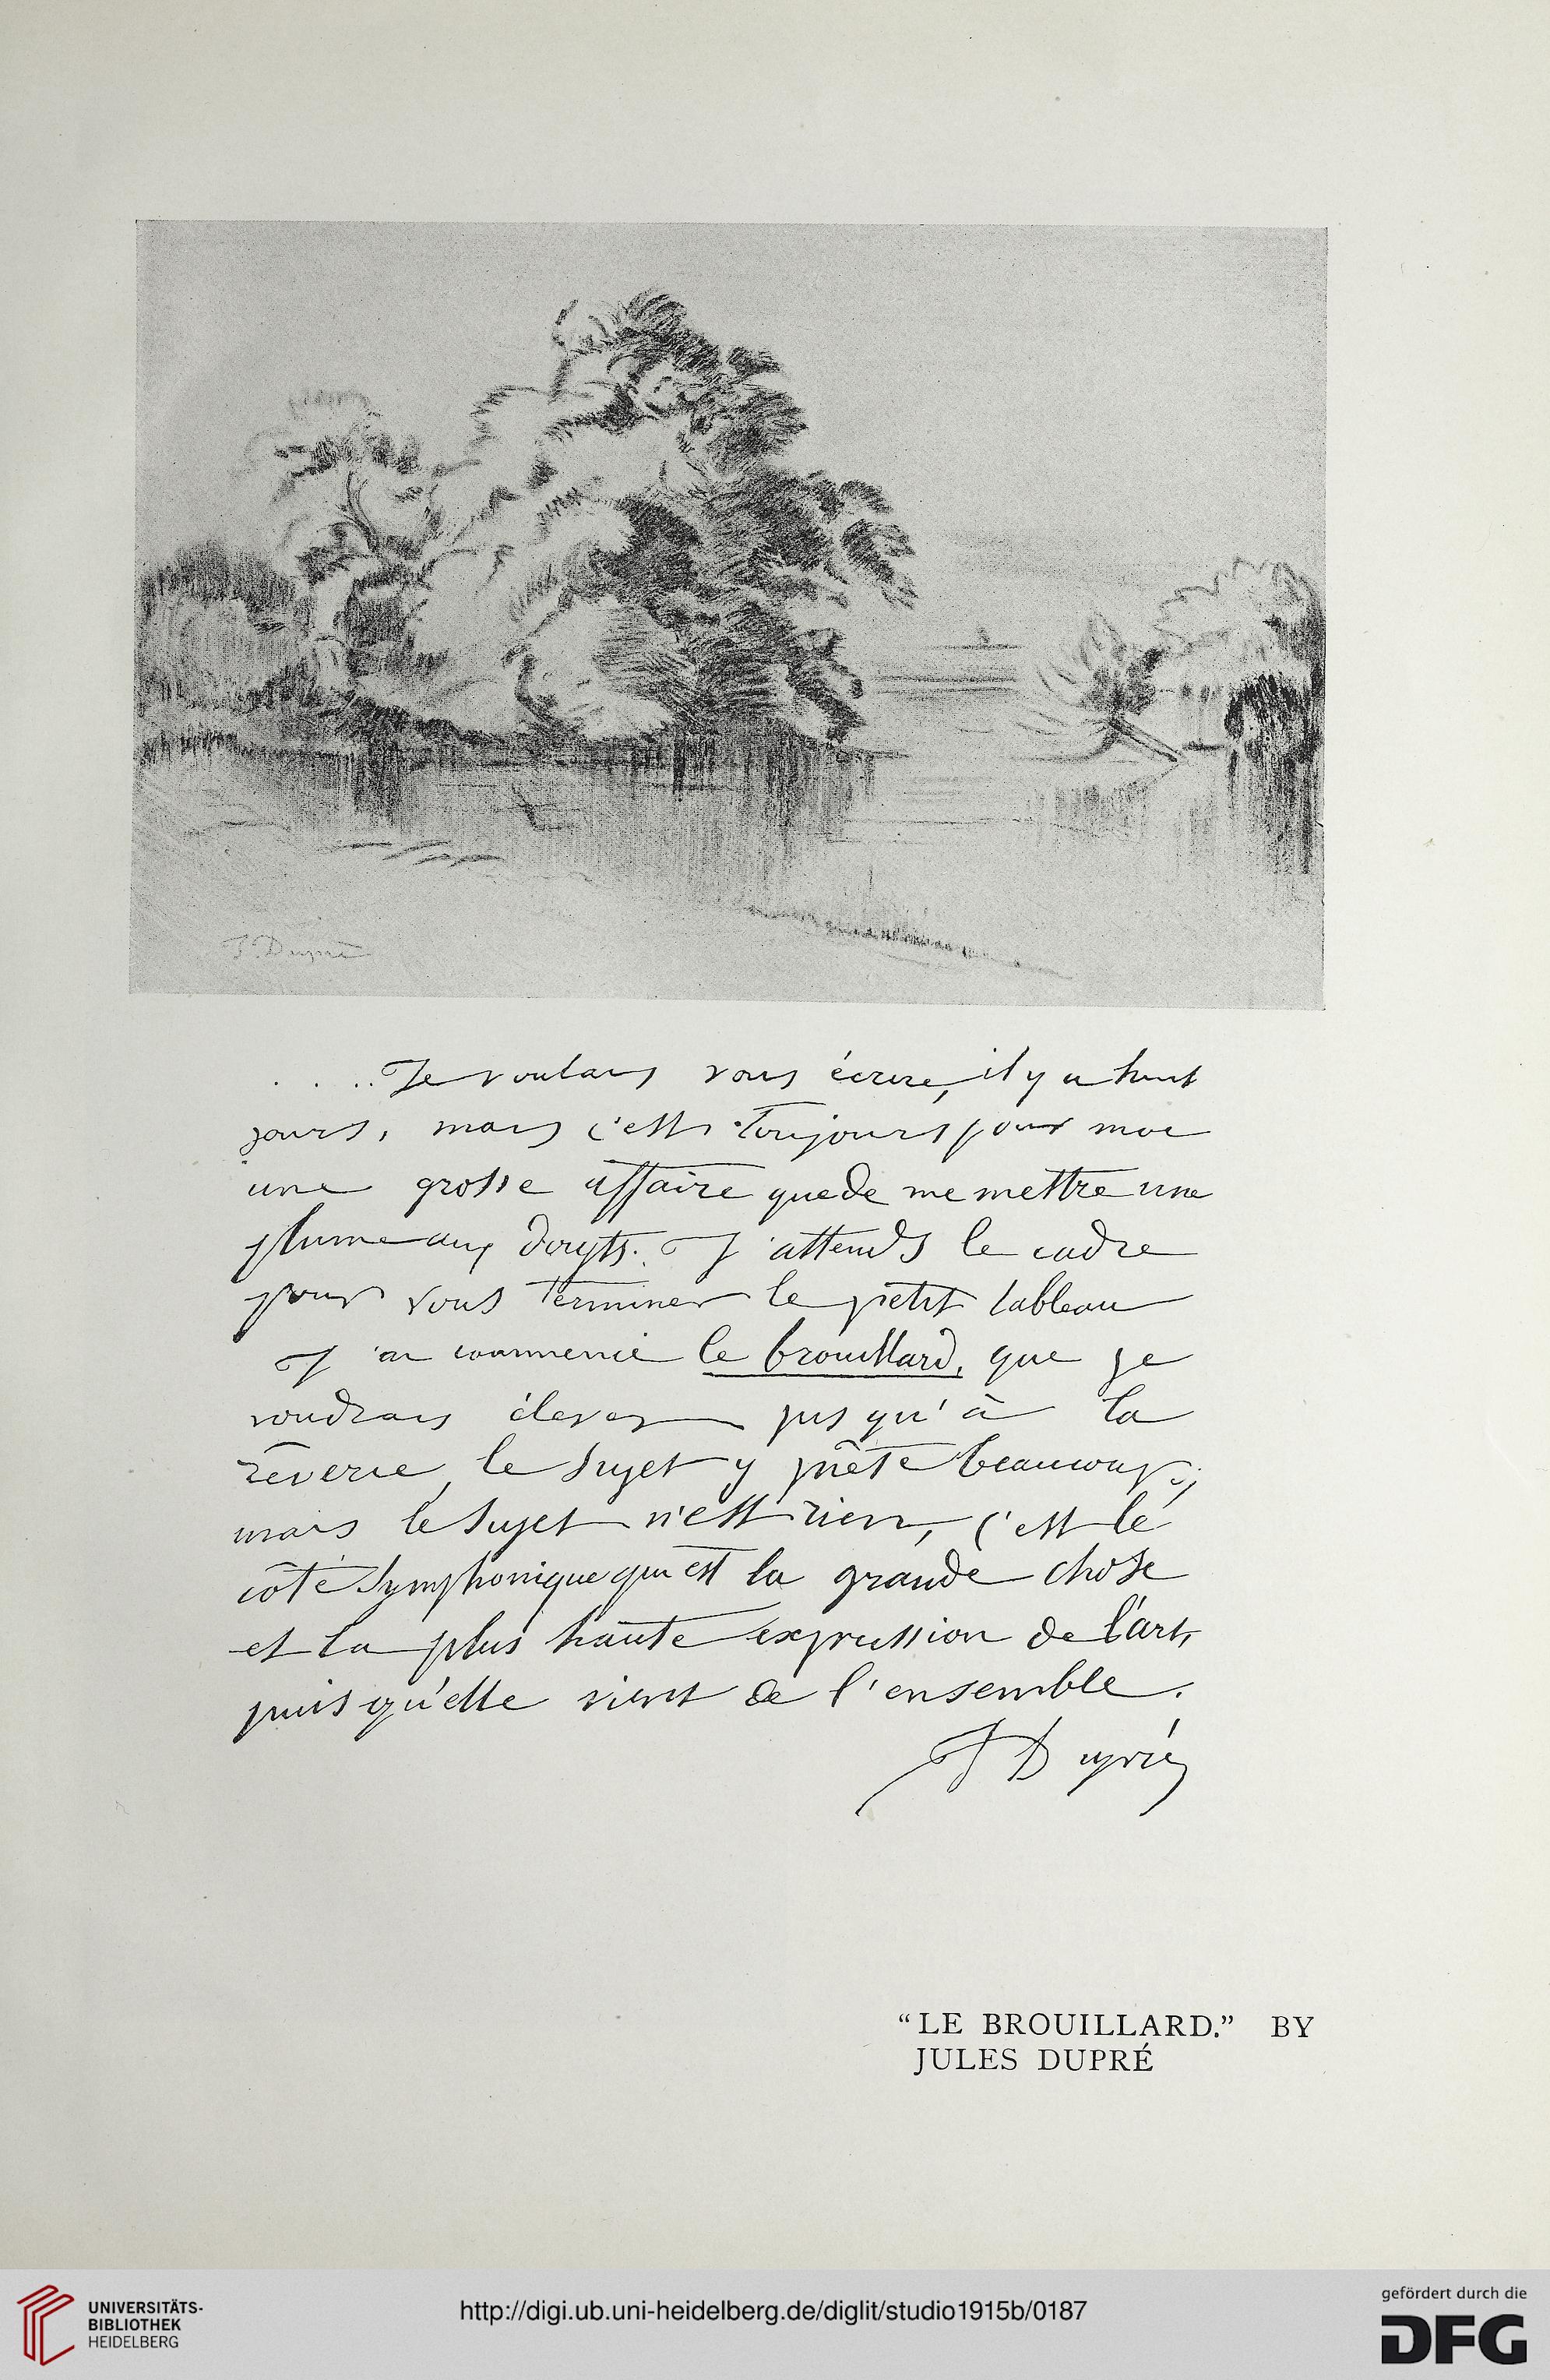 J. Dupré
. . . . Je voulais vous écrire, il y a huit
jours, mais c'est toujours pour moi
une grosse affaire que de me mettre une
plume aux doigts. J'attends le cadre
pour vous terminer le petit tableau
J'ai commencé le brouillard, que je
voudrais élever jusqu'à la
rêverie, le sujet y prête beaucoup;
mais le sujet n'est rien, c'est le
côté symphonique qui est la grande chose
et la plus haute expression de l'art,
puisqu'elle vient de l'ensemble.
J Dupré
“LE BROUILLARD.” BY
JULES DUPRÉ
UNIVERSITÄTS-
BIBLIOTHEK
HEIDELBERG
http://digi.ub.uni-heidelberg.de/diglit/studio1915b/0187
gefördert durch die
DFG